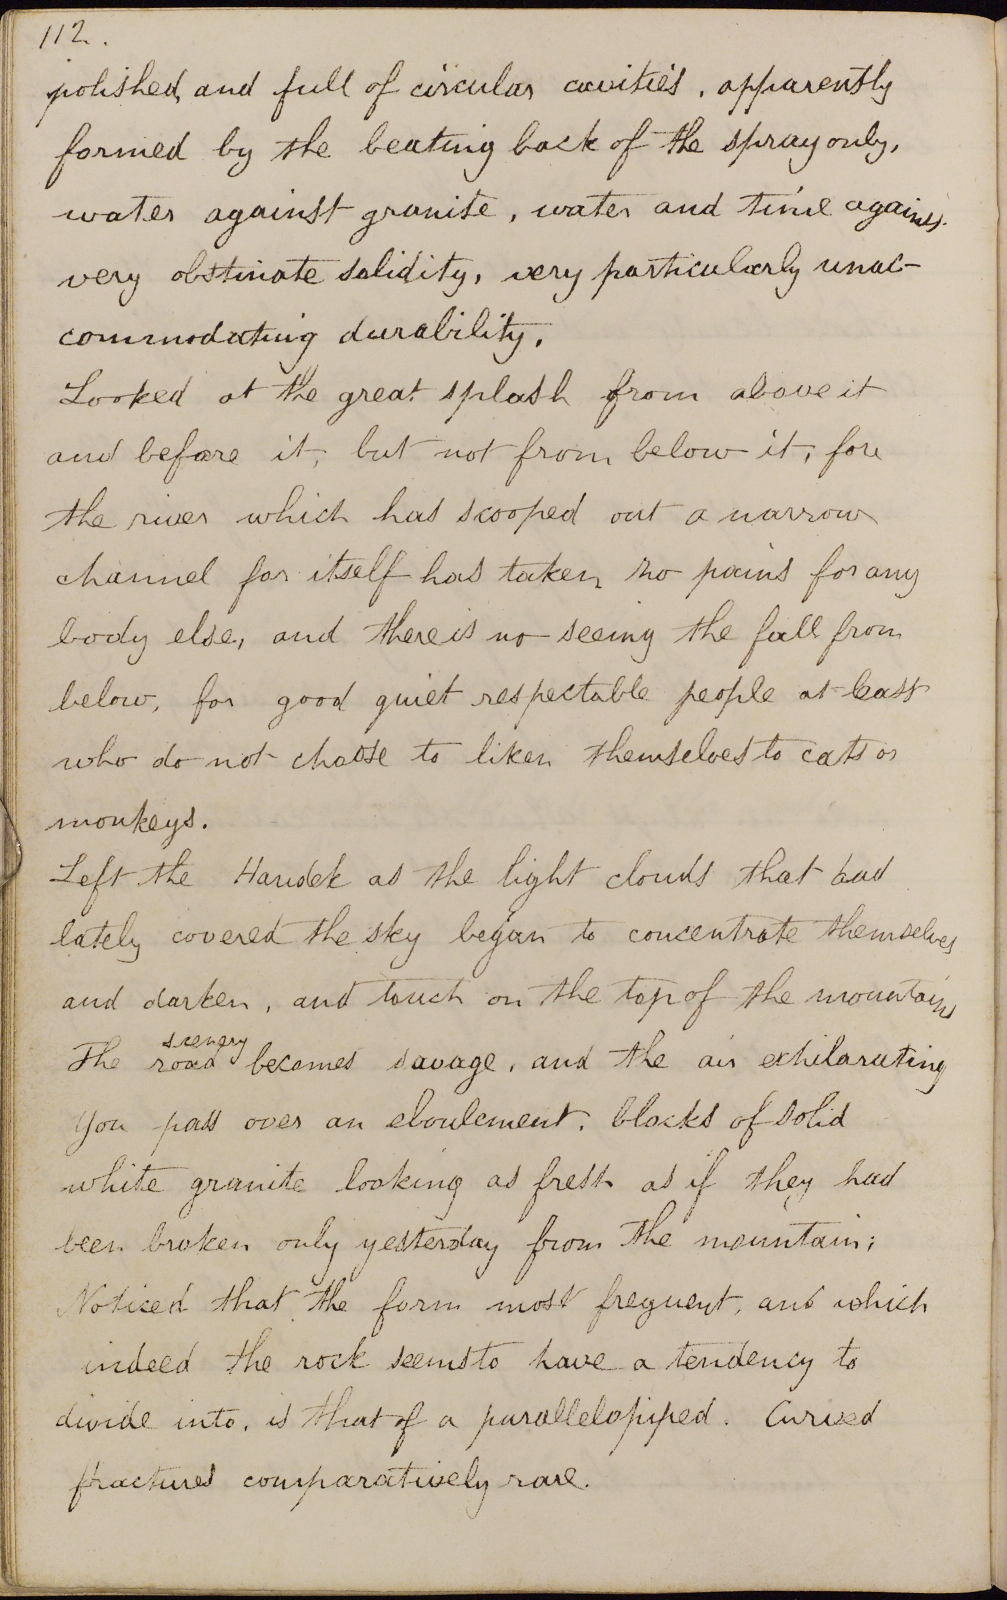 112.
polished, and full of circular cavities, apparently
formed by the beating back of the spray only,
water against granite, water and time against
very obstinate solidity, very particularly unac-
commodating durability.
Looked at the great splash from above it
and before it, but not from below it, for
the river which has scooped out a narrow
channel for itself has taken no pains for any
body else, and there is no seeing the fall from
below, for good quiet respectable people at least
who do not choose to liken themselves to cats or
monkeys.
Left the Handek as the light clouds that had
lately covered the sky began to concentrate themselves
and darken, and touch on the top of the mountains
scenery
The road becomes savage, and the air exhilarating
You pass over an eboulement, blocks of solid
white granite looking as fresh as if they had
been broken only yesterday from the mountain;
Noticed that the form most frequent, and which
indeed the rock seems to have a tendency to
divide into, is that of a parallelopiped. Curved
fractures comparatively rare.